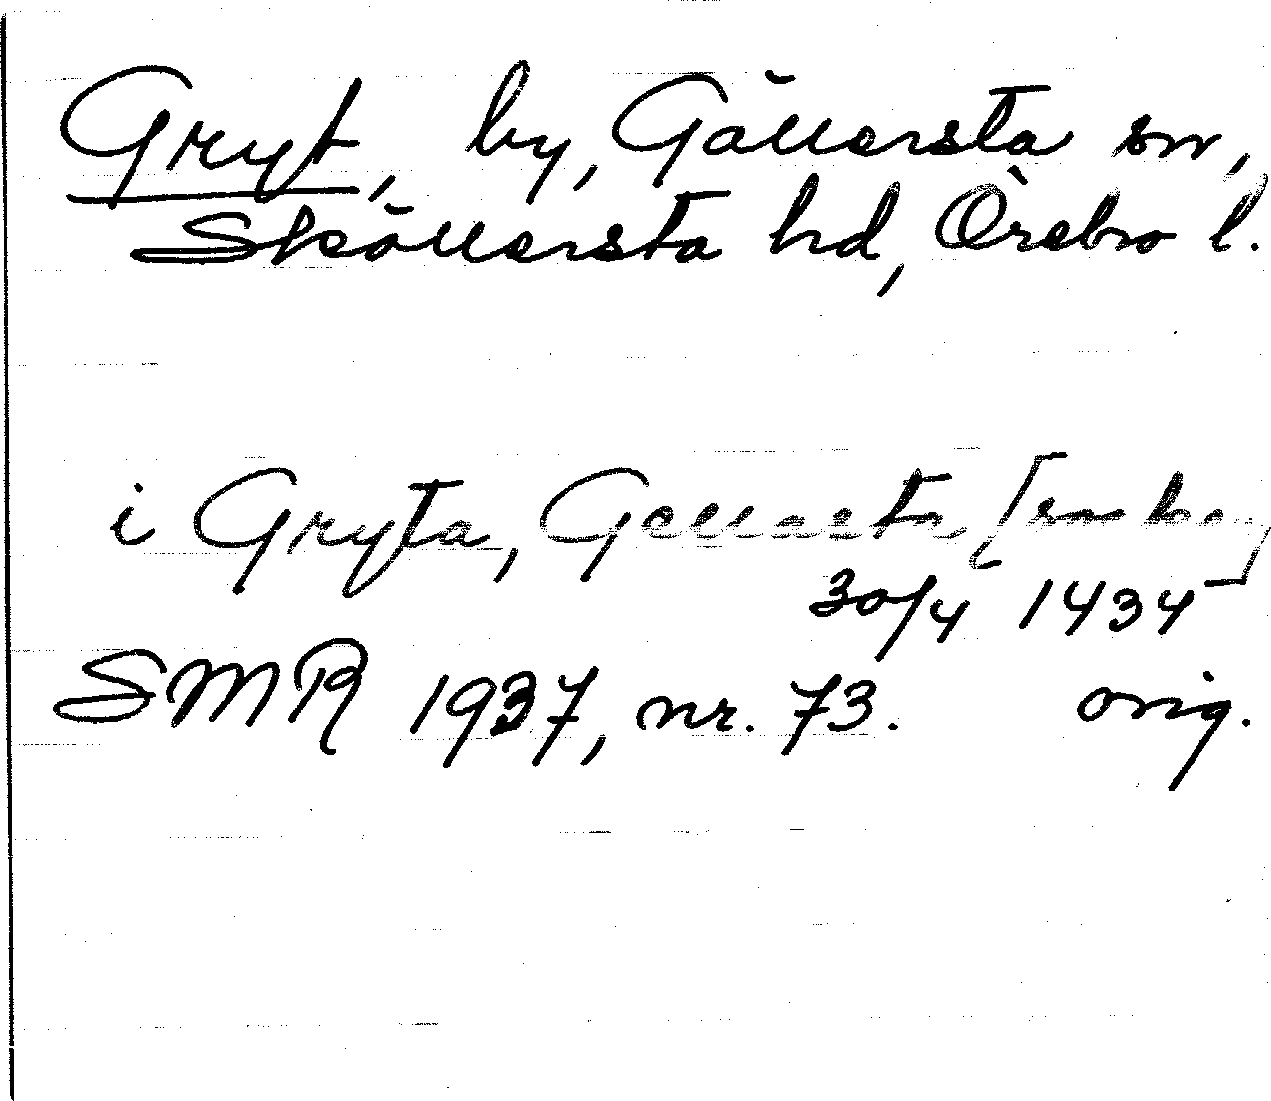 Gryt, by, Gällersta sn,
Sköllersta hd, Örebro l.
i Gryta, Gellasta [socken]
30/4 1434
SMR 1937, nr. 73. orig.